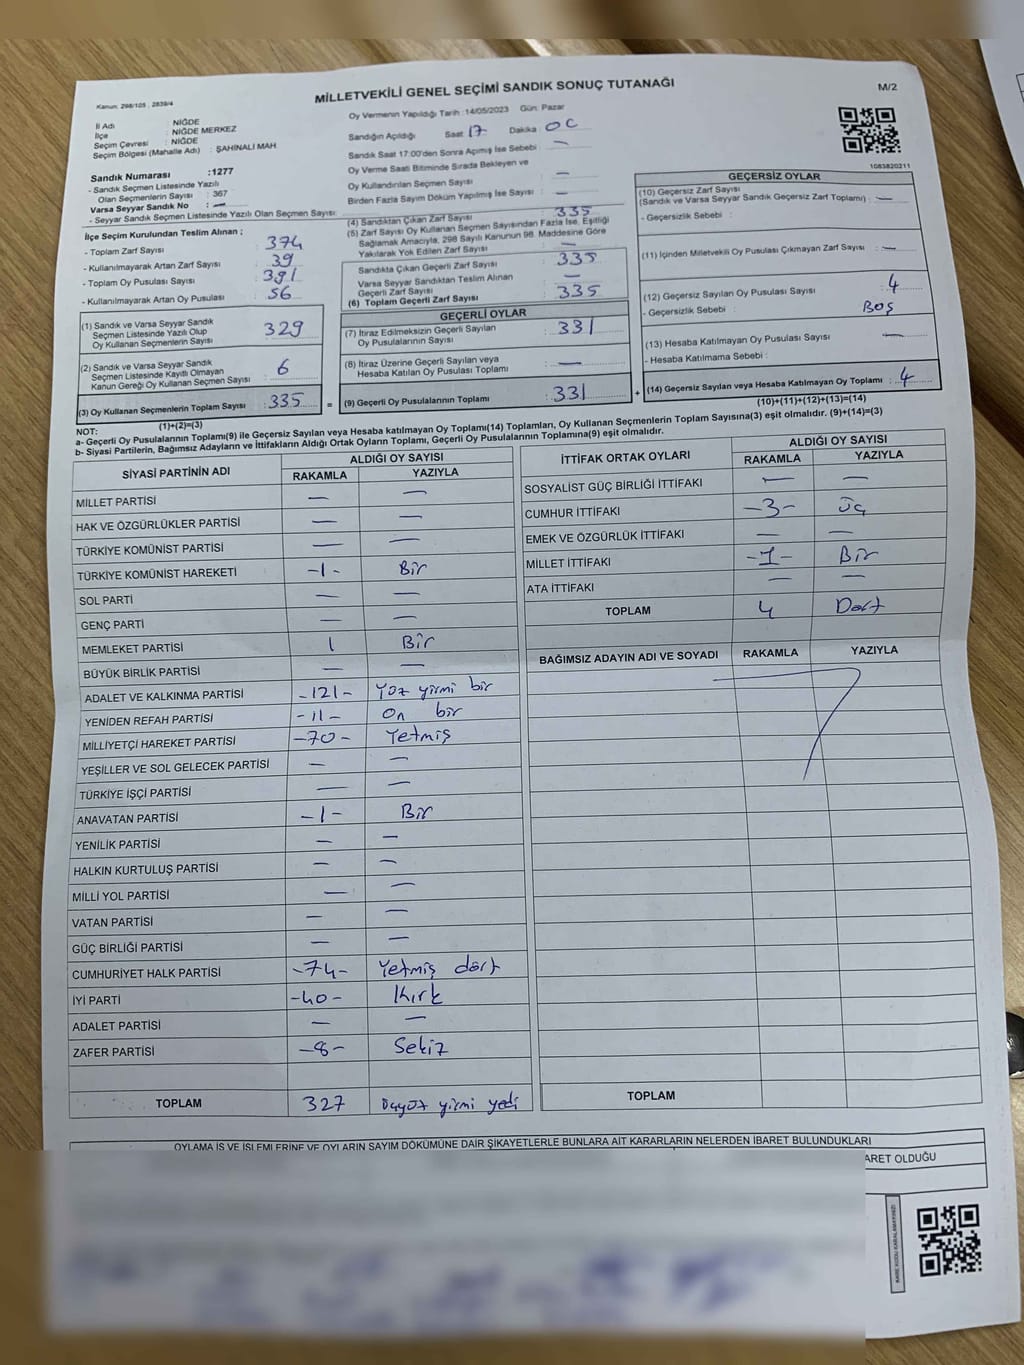 MİLLETVEKİLİ GENEL SEÇİMİ SANDIK SONUÇ TUTANAĞI
M/2
Kanun: 298/105 ; 2839/4
İl Adı : NİĞDE
İlçe : NİĞDE MERKEZ
Seçim Çevresi : NİĞDE
Seçim Bölgesi (Mahalle Adı) : ŞAHİNALİ MAH.
Sandık Numarası :1277
- Sandık Seçmen Listesinde Yazılı
Olan Seçmenlerin Sayısı : 367
Varsa Seyyar Sandık No : —
- Seyyar Sandık Seçmen Listesinde Yazılı Olan Seçmen Sayısı:
İlçe Seçim Kurulundan Teslim Alınan ;
- Toplam Zarf Sayısı : 374
- Kullanılmayarak Artan Zarf Sayısı : 39
- Toplam Oy Pusulası Sayısı : 391
- Kullanılmayarak Artan Oy Pusulası : 56
(1) Sandık ve Varsa Seyyar Sandık
Seçmen Listesinde Yazılı Olup
Oy Kullanan Seçmenlerin Sayısı : 329
(2) Sandık ve Varsa Seyyar Sandık
Seçmen Listesinde Kayıtlı Olmayan
Kanun Gereği Oy Kullanan Seçmen Sayısı : 6
(3) Oy Kullanan Seçmenlerin Toplam Sayısı : 335
(1)+(2)=(3)
Oy Vermenin Yapıldığı Tarih :14/05/2023 Gün: Pazar
Sandığın Açıldığı Saat 17 Dakika 00
Sandık Saat 17:00'den Sonra Açılmış İse Sebebi : —
Oy Verme Saati Bitiminde Sırada Bekleyen ve
Oy Kullandırılan Seçmen Sayısı : —
Birden Fazla Sayım Döküm Yapılmış İse Sayısı : —
(4) Sandıktan Çıkan Zarf Sayısı : 335
(5) Zarf Sayısı Oy Kullanan Seçmen Sayısından Fazla İse, Eşitliği
Sağlamak Amacıyla, 298 Sayılı Kanunun 98. Maddesine Göre
Yakılarak Yok Edilen Zarf Sayısı : —
Sandıkta Çıkan Geçerli Zarf Sayısı : 335
Varsa Seyyar Sandıktan Teslim Alınan
Geçerli Zarf Sayısı : —
(6) Toplam Geçerli Zarf Sayısı : 335
GEÇERLİ OYLAR
(7) İtiraz Edilmeksizin Geçerli Sayılan
Oy Pusulalarının Sayısı : 331
(8) İtiraz Üzerine Geçerli Sayılan veya
Hesaba Katılan Oy Pusulası Toplamı : —
= (9) Geçerli Oy Pusulalarının Toplamı : 331 +
1083820211
GEÇERSİZ OYLAR
(10) Geçersiz Zarf Sayısı
(Sandık ve Varsa Seyyar Sandık Geçersiz Zarf Toplamı) : —
- Geçersizlik Sebebi :
(11) İçinden Milletvekili Oy Pusulası Çıkmayan Zarf Sayısı : —
(12) Geçersiz Sayılan Oy Pusulası Sayısı : 4
- Geçersizlik Sebebi : BOŞ
(13) Hesaba Katılmayan Oy Pusulası Sayısı : —
- Hesaba Katılmama Sebebi :
(14) Geçersiz Sayılan veya Hesaba Katılmayan Oy Toplamı : 4
(10)+(11)+(12)+(13)=(14)
NOT:
a- Geçerli Oy Pusulalarının Toplamı(9) ile Geçersiz Sayılan veya Hesaba katılmayan Oy Toplamı(14) Toplamları, Oy Kullanan Seçmenlerin Toplam Sayısına(3) eşit olmalıdır. (9)+(14)=(3)
b- Siyasi Partilerin, Bağımsız Adayların ve İttifakların Aldığı Ortak Oyların Toplamı, Geçerli Oy Pusulalarının Toplamına(9) eşit olmalıdır.
SİYASİ PARTİNİN ADI ALDIĞI OY SAYISI
RAKAMLA YAZIYLA
MİLLET PARTİSİ — —
HAK VE ÖZGÜRLÜKLER PARTİSİ — —
TÜRKİYE KOMÜNİST PARTİSİ — —
TÜRKİYE KOMÜNİST HAREKETİ -1- Bir
SOL PARTİ — —
GENÇ PARTİ — —
MEMLEKET PARTİSİ 1 Bir
BÜYÜK BİRLİK PARTİSİ — —
ADALET VE KALKINMA PARTİSİ -121- Yüz yirmi bir
YENİDEN REFAH PARTİSİ -11- On bir
MİLLİYETÇİ HAREKET PARTİSİ -70- Yetmiş
YEŞİLLER VE SOL GELECEK PARTİSİ — —
TÜRKİYE İŞÇİ PARTİSİ — —
ANAVATAN PARTİSİ -1- Bir
YENİLİK PARTİSİ — —
HALKIN KURTULUŞ PARTİSİ — —
MİLLİ YOL PARTİSİ — —
VATAN PARTİSİ — —
GÜÇ BİRLİĞİ PARTİSİ — —
CUMHURİYET HALK PARTİSİ -74- Yetmiş dört
İYİ PARTİ -40- Kırk
ADALET PARTİSİ — —
ZAFER PARTİSİ -8- Sekiz
TOPLAM 327 üçyüz yirmi yedi
İTTİFAK ORTAK OYLARI ALDIĞI OY SAYISI
RAKAMLA YAZIYLA
SOSYALİST GÜÇ BİRLİĞİ İTTİFAKI — —
CUMHUR İTTİFAKI -3- üç
EMEK VE ÖZGÜRLÜK İTTİFAKI — —
MİLLET İTTİFAKI -1- Bir
ATA İTTİFAKI — —
TOPLAM 4 Dört
BAĞIMSIZ ADAYIN ADI VE SOYADI RAKAMLA YAZIYLA
TOPLAM
OYLAMA İŞ VE İŞLEMLERİNE VE OYLARIN SAYIM DÖKÜMÜNE DAİR ŞİKAYETLERLE BUNLARA AİT KARARLARIN NELERDEN İBARET BULUNDUKLARI
ARET OLDUĞU